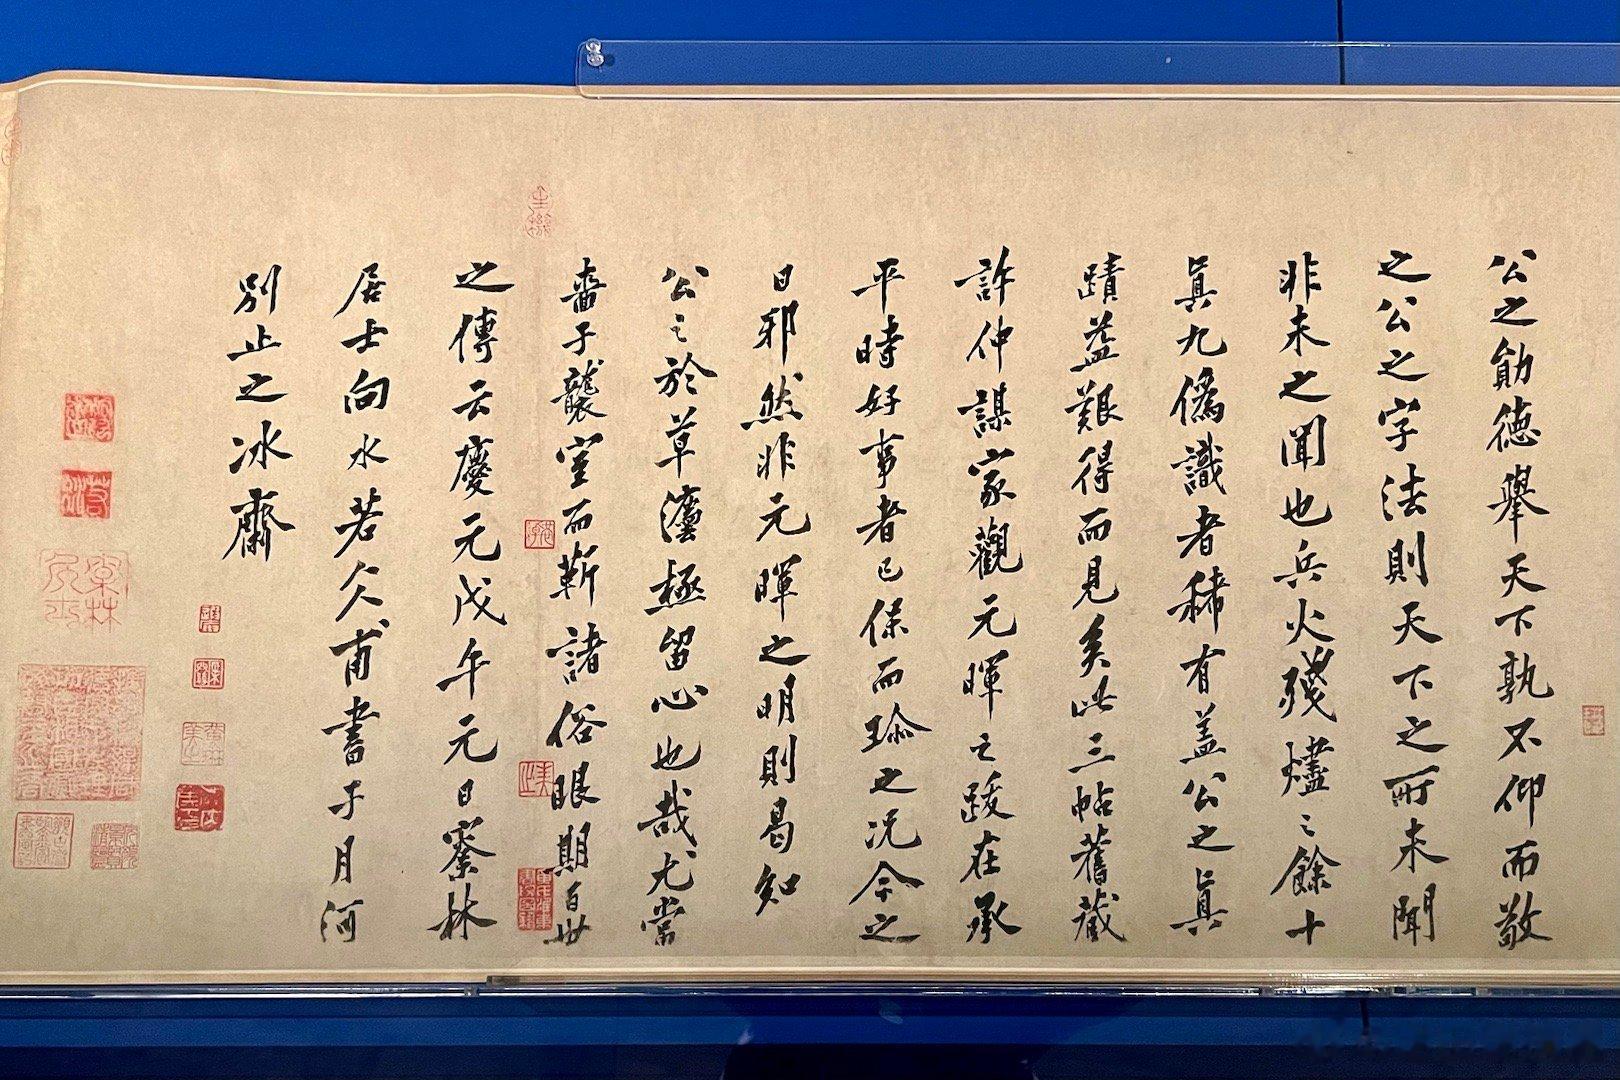 公之勛德舉天下孰不仰而敬
之公之字法則天下之所未聞
非未之聞也兵火殘燼之餘十
眞九僞識者稀有盖公之眞
蹟益艱得而見矣此三帖舊藏
許仲謀家觀元暉之跋在承
平時好事者已保而珎之况今之
日邪然非元暉之明則曷知
公之於草瀍極留心也哉尤當
嗇于襲室而靳諸俗眼期百世
之傳云慶元戊午元日寮林
居士向水若父甫書于月河
別止之冰齋